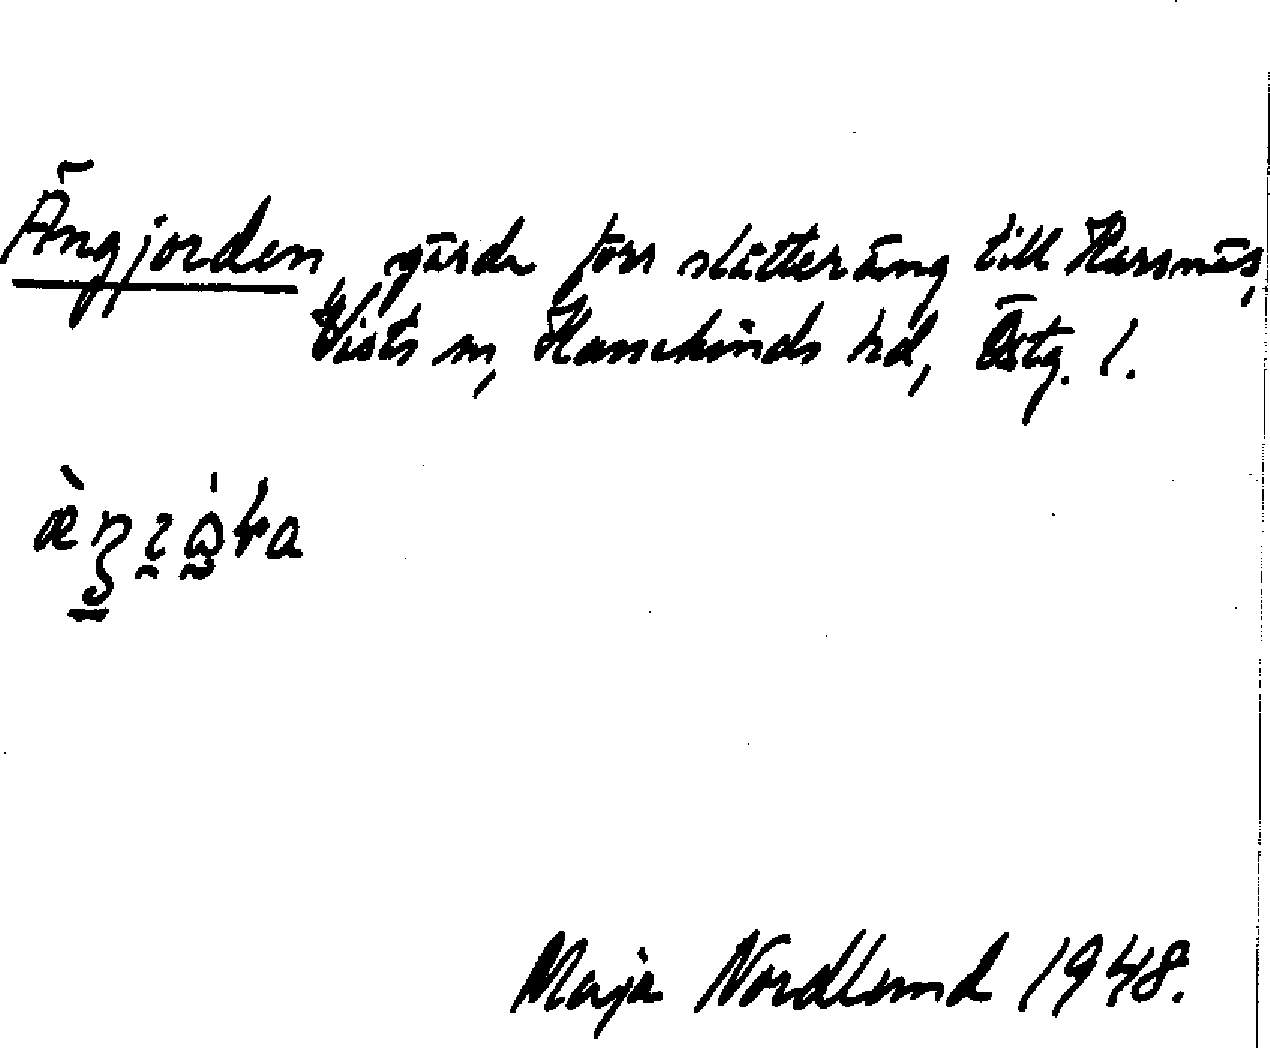 Ängjorden, gärde förr slåtteräng till Hassnäs,
Vists sn, Hanekinds hd, Östg. l.
Maja Nordlund 1948.